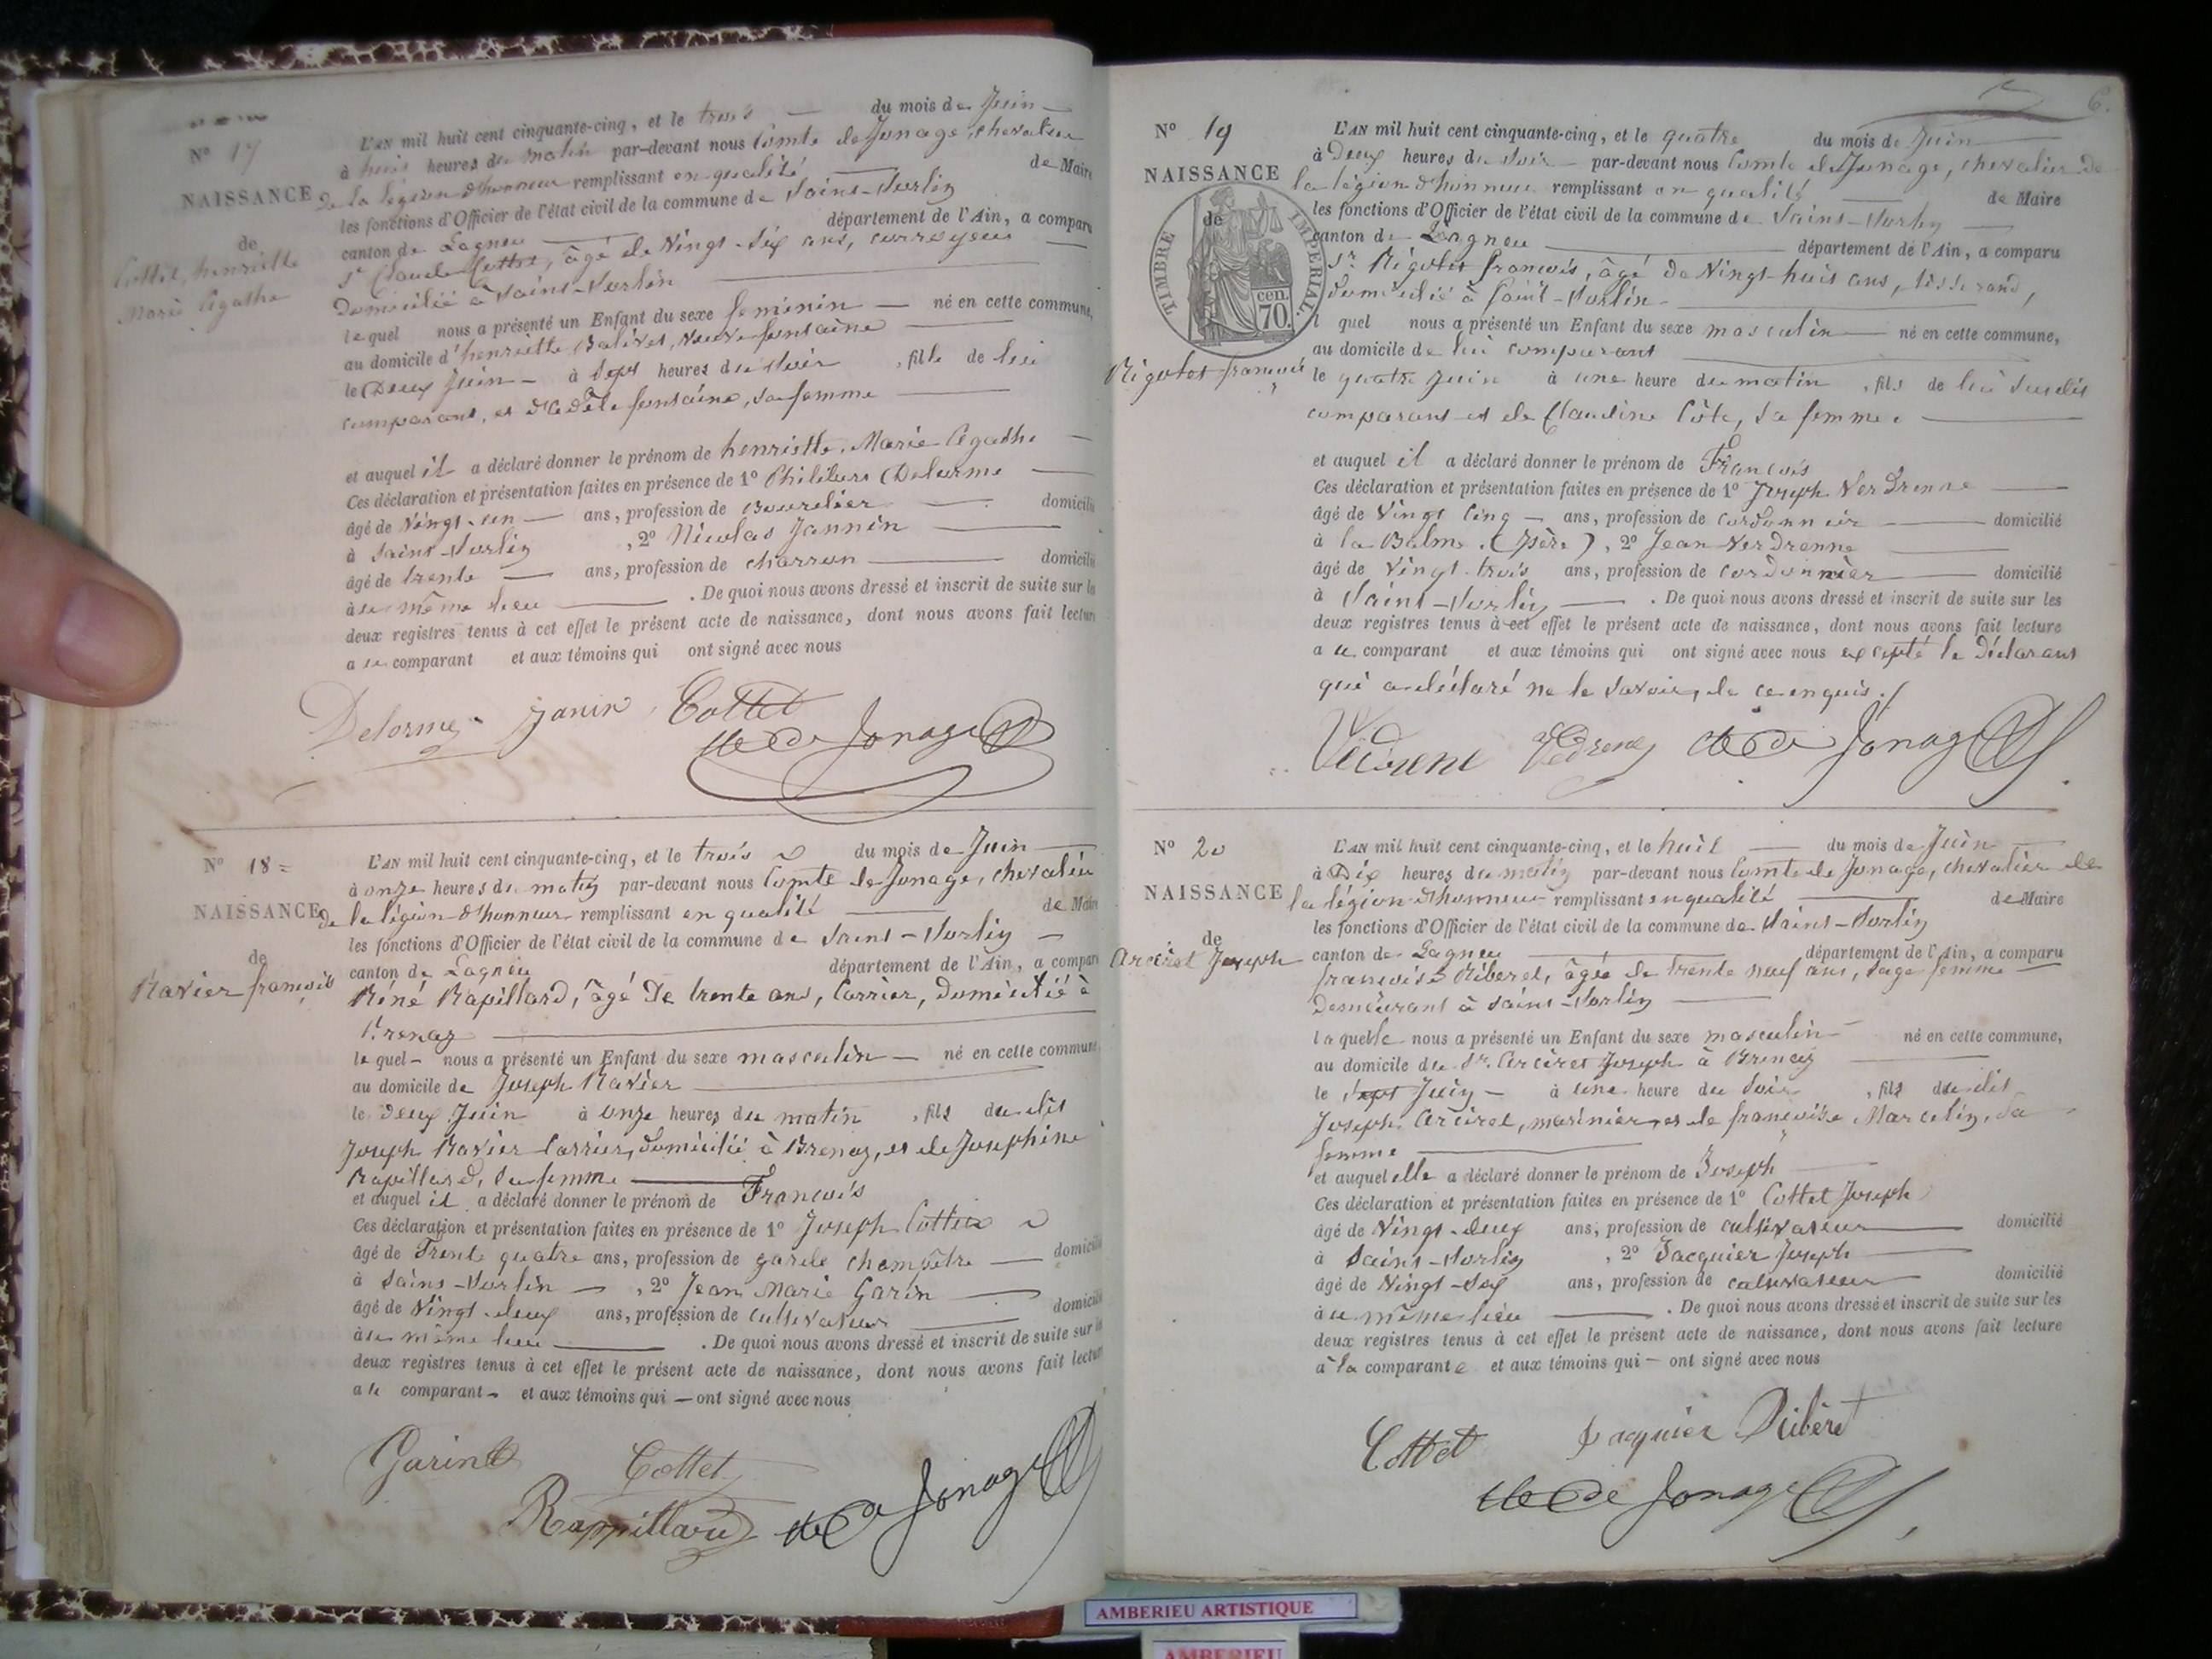 N° 17
NAISSANCE
de
Cottet, henriette
Marie Agathe
L'AN mil huit cent cinquante-cinq, et le trois du mois de Juin
à huit heures du matin par-devant nous Comte de Jonage, chevalier
de la légion d'honneur remplissant en qualité de Maire
les fonctions d'Officier de l'état civil de la commune de Saint-Sorlin
canton de Lagneu département de l'Ain, a comparu
Sr Claude Cottet, âgé de Vingt-six ans, corroyeur
Domicilié à Saint-Sorlin
lequel nous a présenté un Enfant du sexe féminin né en cette commune,
au domicile d'henriette Balivet, Veuve fontaine
le Deux Juin à Sept heures du soir, fille de lui
comparant, et d'Adèle fontaine, sa femme
et auquel il a déclaré donner le prénom de henriette, Marie Agathe
Ces déclaration et présentation faites en présence de 1° Philibert Delorme
âgé de Vingt-un ans, profession de Bourelier domicilié
à Saint-Sorlin, 2° Nicolas Jannin
âgé de trente ans, profession de charron domicilié
à ce même lieu. De quoi nous avons dressé et inscrit de suite sur les
deux registres tenus à cet effet le présent acte de naissance, dont nous avons fait lecture
a ce comparant et aux témoins qui ont signé avec nous
Delorme Janin Cottet
cte De Jonage
N° 18
NAISSANCE
de
Ravier françois
L'AN mil huit cent cinquante-cinq, et le trois du mois de Juin
à onze heures du matin par-devant nous Comte de Jonage, chevalier
de la légion d'honneur remplissant en qualité de Maire
les fonctions d'Officier de l'état civil de la commune de Saint-Sorlin
canton de Lagnieu département de l'Ain, a comparu
Réné Rapillard, âgé De trente ans, Carrier, Domicilié à
Brenaz
lequel nous a présenté un Enfant du sexe masculin né en cette commune
au domicile de Joseph Ravier
le deux Juin à onze heures du matin, fils du dit
Joseph Ravier Carrier, domicilié à Brenaz, et de Josephine
Rapillard, sa femme
et auquel il a déclaré donner le prénom de François
Ces déclaration et présentation faites en présence de 1° Joseph Cottet
âgé de Trente quatre ans, profession de garde champêtre domicilié
à Saint-Sorlin, 2° Jean Marie Garin
âgé de Vingt-deux ans, profession de cultivateur domicilié
à ce même lieu. De quoi nous avons dressé et inscrit de suite sur les
deux registres tenus à cet effet le présent acte de naissance, dont nous avons fait lecture
a le comparant et aux témoins qui ont signé avec nous
Garin Cottet
Rappillard cte De Jonage
6.
N° 19
NAISSANCE
de
TIMBRE IMPERIAL.
70. cen
Rigotet françois
L'AN mil huit cent cinquante-cinq, et le quatre du mois de Juin
à Deux heures du soir par-devant nous Comte de Jonage, chevalier de
la légion d'honneur remplissant en qualité de Maire
les fonctions d'Officier de l'état civil de la commune de Saint-Sorlin
canton de Lagneu département de l'Ain, a comparu
Sr. Rigotet françois, âgé de Vingt-huit ans, tisserand,
domicilié à Saint-Sorlin
l quel nous a présenté un Enfant du sexe masculin né en cette commune,
au domicile de lui comparant
le quatre Juin à une heure du matin, fils de lui susdit
comparant et de Claudine Côte, sa femme
et auquel il a déclaré donner le prénom de François
Ces déclaration et présentation faites en présence de 1° Joseph Verdrenne
âgé de Vingt Cinq ans, profession de cordonnier domicilié
à la Balme (Isère), 2° Jean Verdrenne
âgé de Vingt-trois ans, profession de cordonnier domicilié
à Saint-Sorlin. De quoi nous avons dressé et inscrit de suite sur les
deux registres tenus à cet effet le présent acte de naissance, dont nous avons fait lecture
a ce comparant et aux témoins qui ont signé avec nous excepté le Déclarant
qui a déclaré ne le savoir, de ce enquis.
Vedrene Vedrene cte De Jonage
N° 20
NAISSANCE
de
Arciret Joseph
L'AN mil huit cent cinquante-cinq, et le huit du mois de Juin
à Dix heures du matin par-devant nous Comte de Jonage, chevalier de
la légion d'honneur remplissant en qualité de Maire
les fonctions d'Officier de l'état civil de la commune de Saint-Sorlin
canton de Lagneu département de l'Ain, a comparu
françoise Riberet, âgée de trente neuf ans, sage femme
Demeurant à Saint-Sorlin
laquelle nous a présenté un Enfant du sexe masculin né en cette commune,
au domicile du Sr. Arciret Joseph à Brenaz
le Sept Juin à une heure du soir, fils du dit
Joseph Arciret, marinier, et de françoise Marcelin, sa
femme
et auquel elle a déclaré donner le prénom de Joseph
Ces déclaration et présentation faites en présence de 1° Cottet Joseph
âgé de Vingt-deux ans, profession de cultivateur domicilié
à Saint-Sorlin, 2° Jacquier Joseph
âgé de Vingt-six ans, profession de cultivateur domicilié
à ce même lieu. De quoi nous avons dressé et inscrit de suite sur les
deux registres tenus à cet effet le présent acte de naissance, dont nous avons fait lecture
à la comparante et aux témoins qui ont signé avec nous
Cottet Jacquier Ribéret
cte De Jonage
AMBERIEU ARTISTIQUE
AMBERIEU